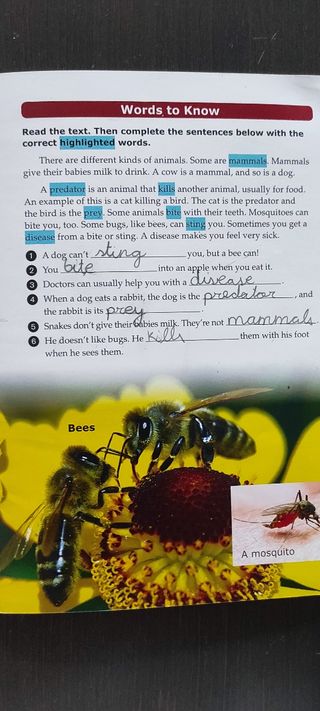 Words to Know
Read the text. Then complete the sentences below with the
correct highlighted words.
There are different kinds of animals. Some are mammals. Mammals
give their babies milk to drink. A cow is a mammal, and so is a dog.
A predator is an animal that kills another animal, usually for food.
An example of this is a cat killing a bird. The cat is the predator and
the bird is the prey. Some animals bite with their teeth. Mosquitoes can
bite you, too. Some bugs, like bees, can sting you. Sometimes you get a
disease from a bite or sting. A disease makes you feel very sick.
1 A dog can't sting you, but a bee can!
2 You bite into an apple when you eat it.
3 Doctors can usually help you with a disease.
4 When a dog eats a rabbit, the dog is the predator, and
the rabbit is its prey.
5 Snakes don't give their babies milk. They're not mammals.
6 He doesn't like bugs. He kills them with his foot
when he sees them.
Bees
A mosquito